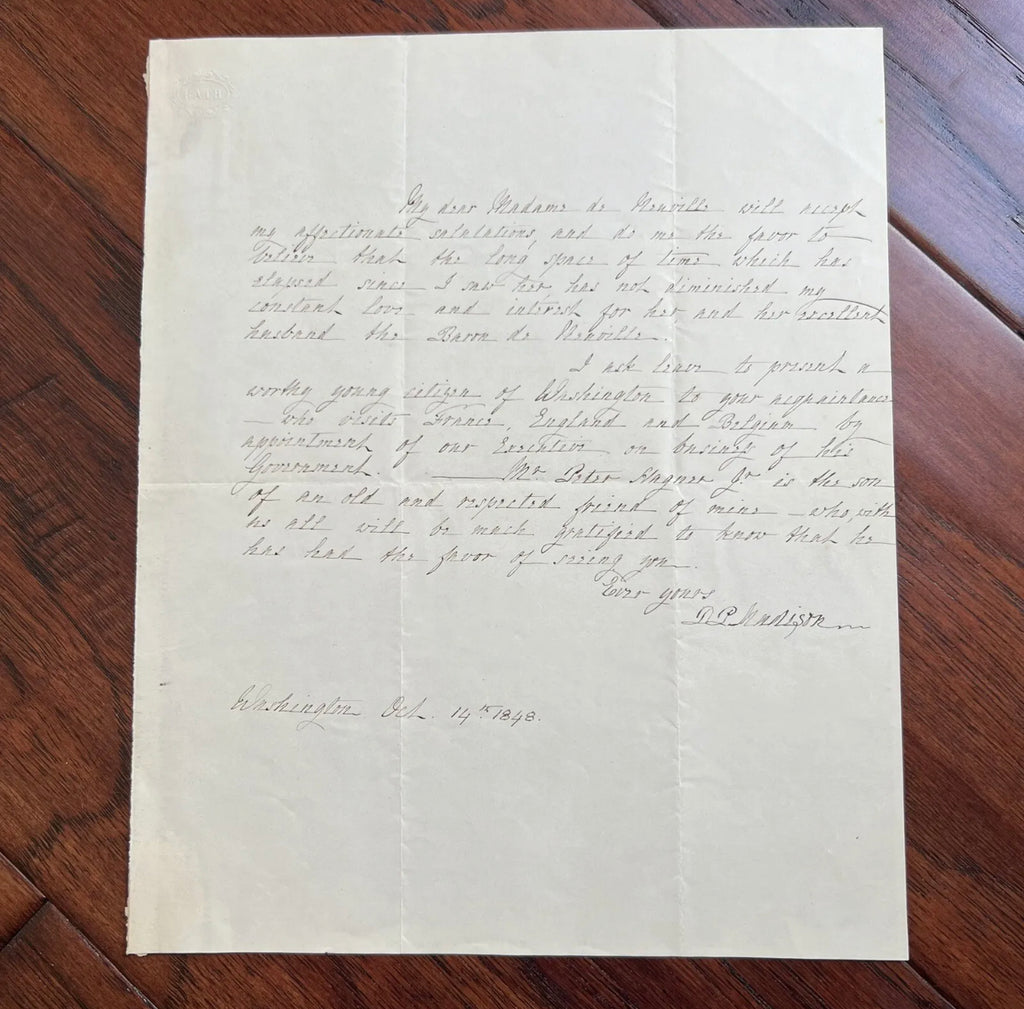 BATH
My dear Madame de Neuville will accept
my affectionate salutations, and do me the favor to
believe that the long space of time which has
elapsed since I saw her has not diminished my
constant love and interest for her and her excellent
husband the Baron de Neuville.
I ask leave to present a
worthy young citizen of Washington to your acquaintance
— who visits France, England and Belgium by
appointment of our Executive on business of his
Government. — Mr. Peter Hagner Jr. is the son
of an old and respected friend of mine — who, with
us all will be much gratified to know that he
has had the favor of seeing you.
Ever yours
D. P. Madison
Washington Oct. 14th 1848.